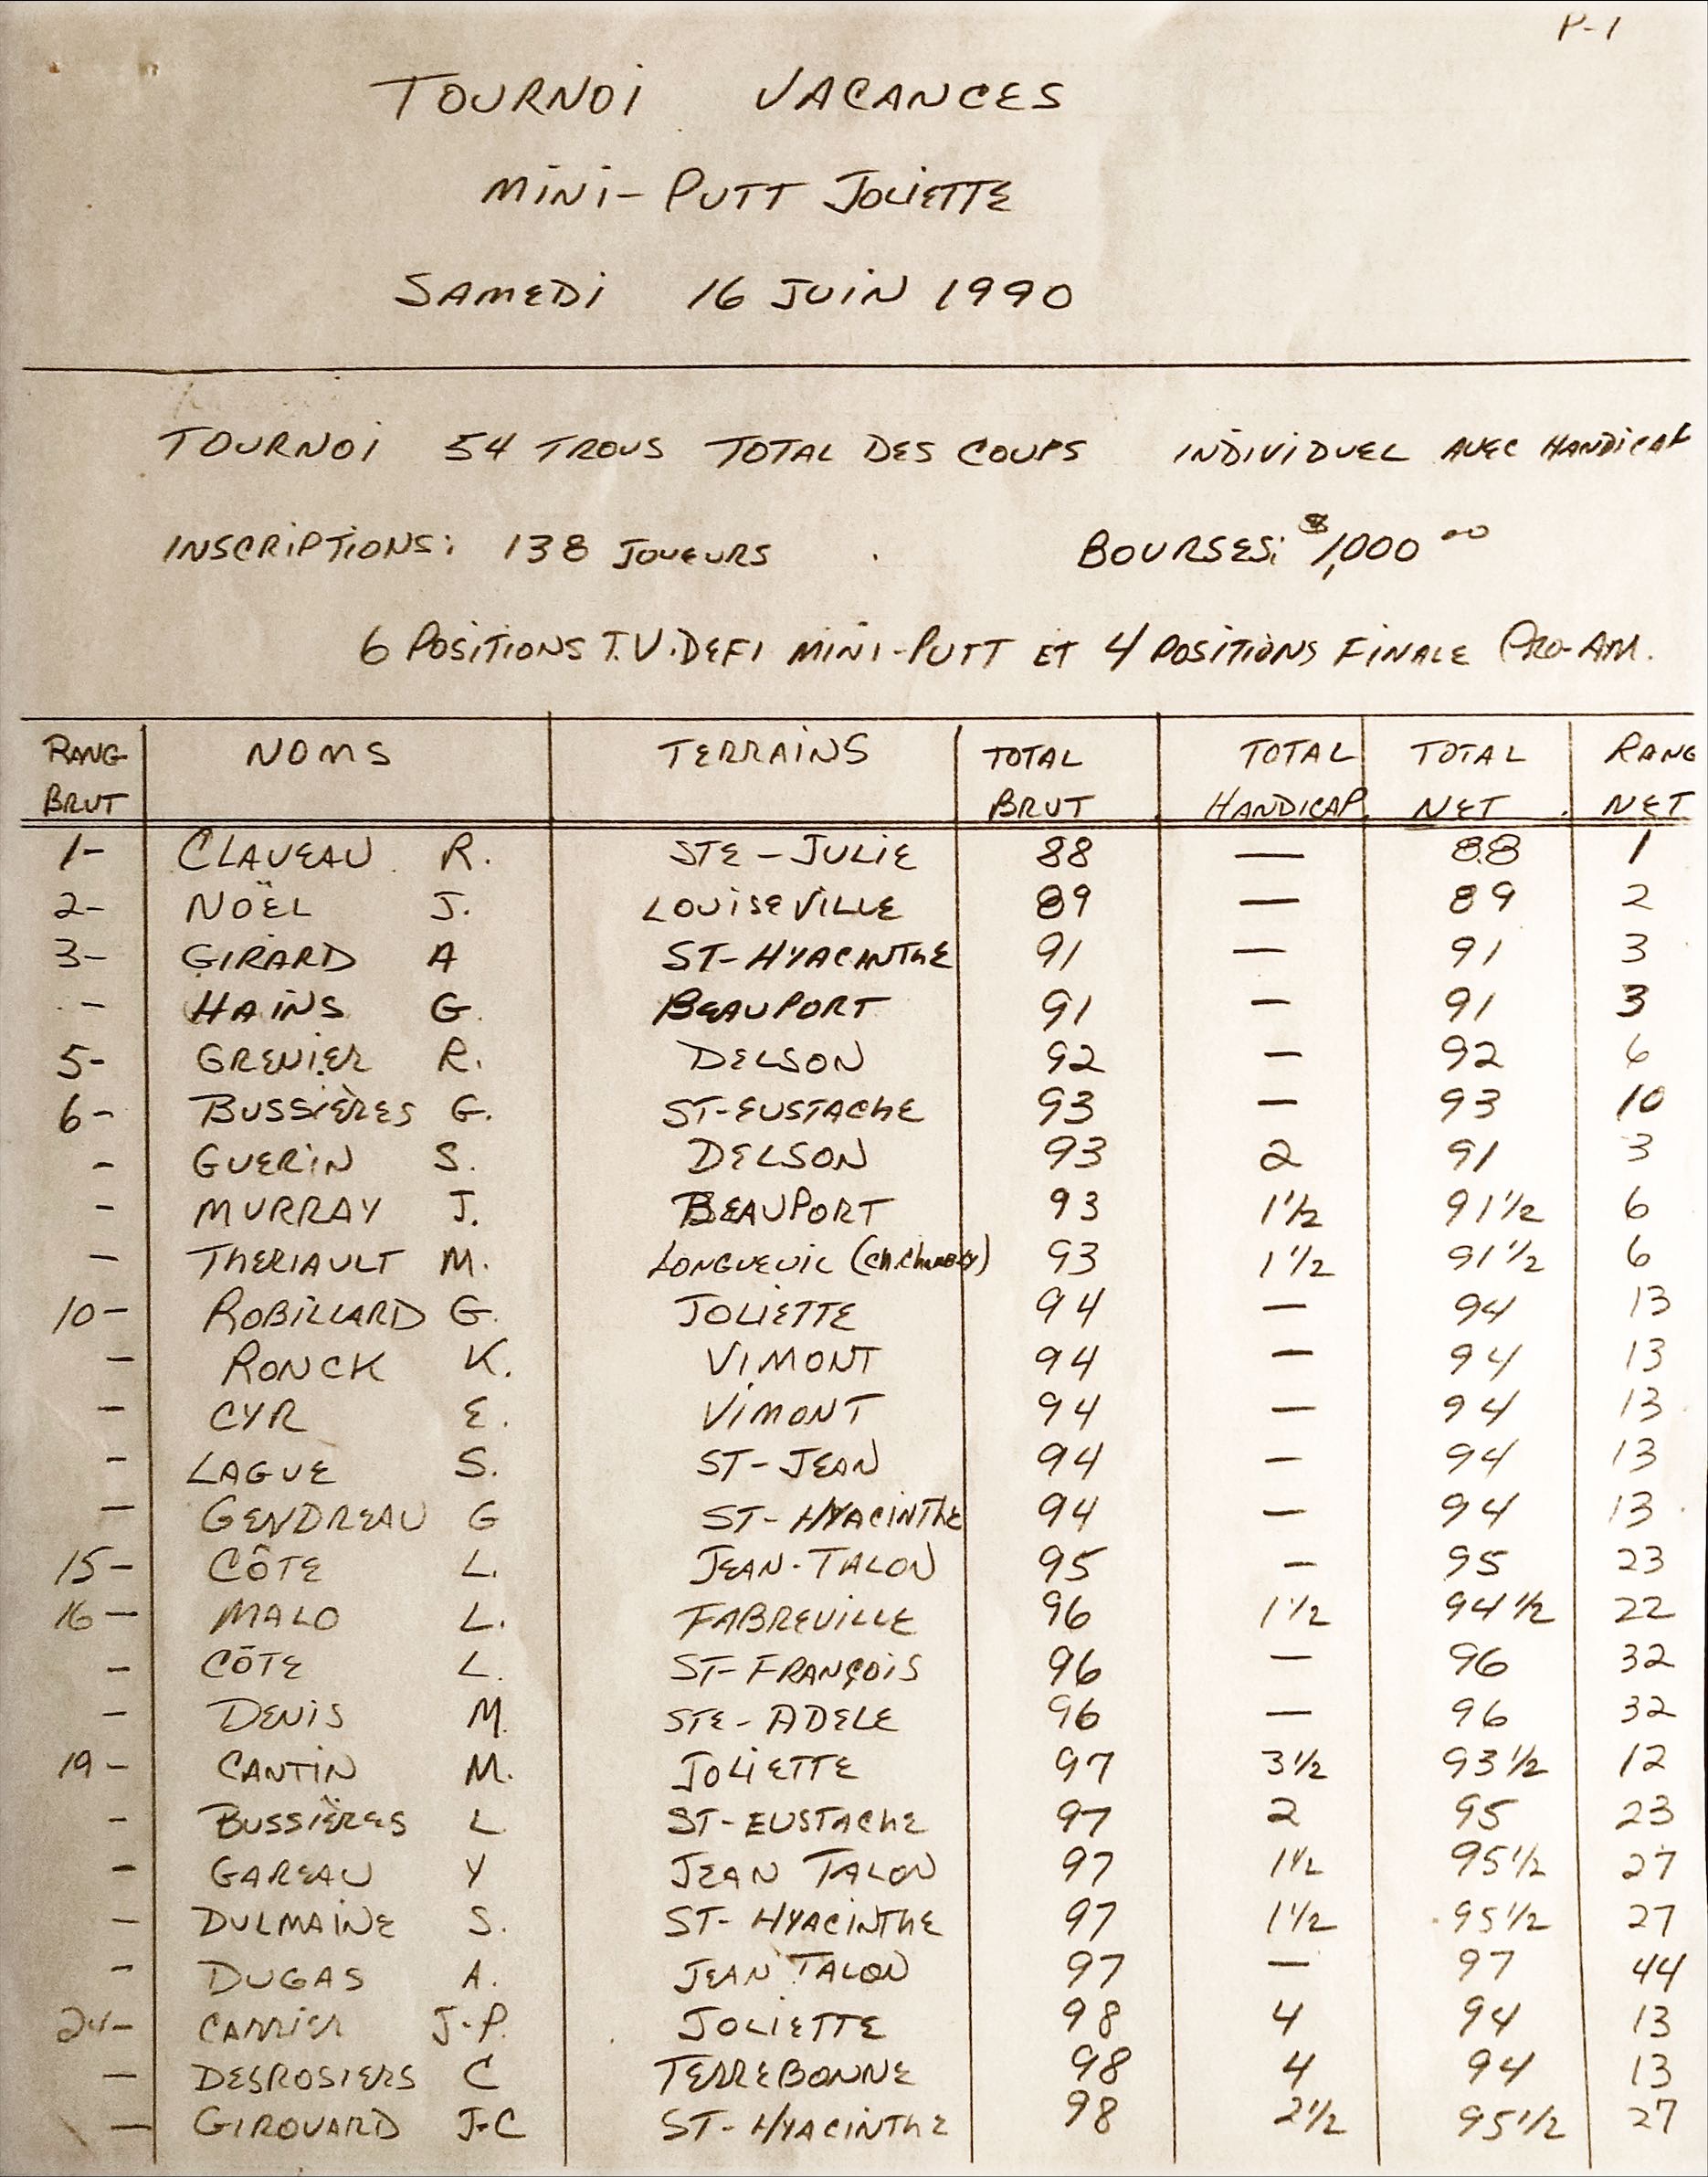 P-1
TOURNOI VACANCES
MINI-PUTT JOLIETTE
SAMEDI 16 JUIN 1990
TOURNOI 54 TROUS TOTAL DES COUPS INDIVIDUEL AVEC HANDICAP
INSCRIPTIONS: 138 JOUEURS BOURSES: $1,000.00
6 POSITIONS T.V. DEFI MINI-PUTT ET 4 POSITIONS FINALE PRO-AM.
RANG NOMS TERRAINS TOTAL TOTAL TOTAL RANG
BRUT BRUT HANDICAP NET NET
1- CLAVEAU R. STE-JULIE 88 — 88 1
2- NOËL J. LOUISEVILLE 89 — 89 2
3- GIRARD A ST-HYACINTHE 91 — 91 3
- HAINS G. BEAUPORT 91 — 91 3
5- GRENIER R. DELSON 92 — 92 6
6- BUSSIÈRES G. ST-EUSTACHE 93 — 93 10
- GUERIN S. DELSON 93 2 91 3
- MURRAY J. BEAUPORT 93 1½ 91½ 6
- THERIAULT M. LONGUEUIL (Ch. Chambly) 93 1½ 91½ 6
10- ROBILLARD G. JOLIETTE 94 — 94 13
- RONCK K. VIMONT 94 — 94 13
- CYR E. VIMONT 94 — 94 13
- LAGUE S. ST-JEAN 94 — 94 13
- GENDREAU G ST-HYACINTHE 94 — 94 13
15- CÔTE L. JEAN-TALON 95 — 95 23
16- MALO L. FABREVILLE 96 1½ 94½ 22
- CÔTE L. ST-FRANÇOIS 96 — 96 32
- DENIS M. STE-ADELE 96 — 96 32
19- CANTIN M. JOLIETTE 97 3½ 93½ 12
- BUSSIÈRES L ST-EUSTACHE 97 2 95 23
- GAREAU Y JEAN TALON 97 1½ 95½ 27
- DULMAINE S. ST-HYACINTHE 97 1½ 95½ 27
- DUGAS A. JEAN TALON 97 — 97 44
24- CARRIER J-P. JOLIETTE 98 4 94 13
- DESROSIERS C TERREBONNE 98 4 94 13
- GIROUARD J-C ST-HYACINTHE 98 2½ 95½ 27